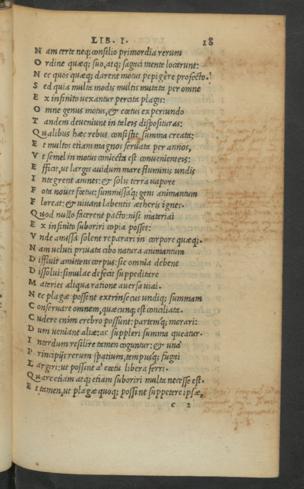 LIB. I. 18
N am certe neq; consilio primordia rerum
O rdine quæq; suo, atq; sagaci mente locarunt:
N ec quos quæq; darent motus pepigere profecto.
S ed quia multa modis multis mutata per omne
E x infinito uexantur percita plagis:
O mne genus motus, & cœtus experiundo
T andem deueniunt in taleis disposituras:
Q ualibus hæc rebus consistit summa creata:
E t multos etiam magnos seruata per annos,
V t semel in motus coniecta est conuenienteis:
E fficit, ut largis auidum mare fluminis undis
I ntegrent amnes: & solis terra uapore
F ota nouet fœtus: summissáq; gens animantum
F loreat: & uiuant labentes ætheris ignes.
Q uod nullo facerent pacto: nisi materiai
E x infinito suboriri copia posset:
V nde amissa solent reparari in corpore quæq;.
N am ueluti priuata cibo natura animantum
D iffluit amittens corpus: sic omnia debent
D issolui: simulac defecit suppeditere
M ateries aliqua ratione auersa uiai.
N ec plagæ possunt extrinsecus undiq; summam
C onseruare omnem, quæcunq; est conciliata.
C udere enim crebro possunt: partemq; morari:
D um ueniant aliæ: ac suppleri summa queatur.
I nterdum resilire tamen coguntur: & una
P rincipiis rerum spatium, tempusq; fugai
L argiri: ut possint a' cœtu libera ferri.
Q uare etiam atq; etiam suboriri multa necesse est.
E t tamen, ut plagæ quoq; possint suppetere ipsæ,
c 2